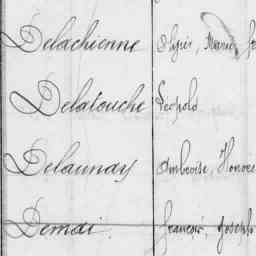 Delachienne Marie
Delatouche Léopold
Delaunay Ambroise, Honoré
Demai François, Joseph